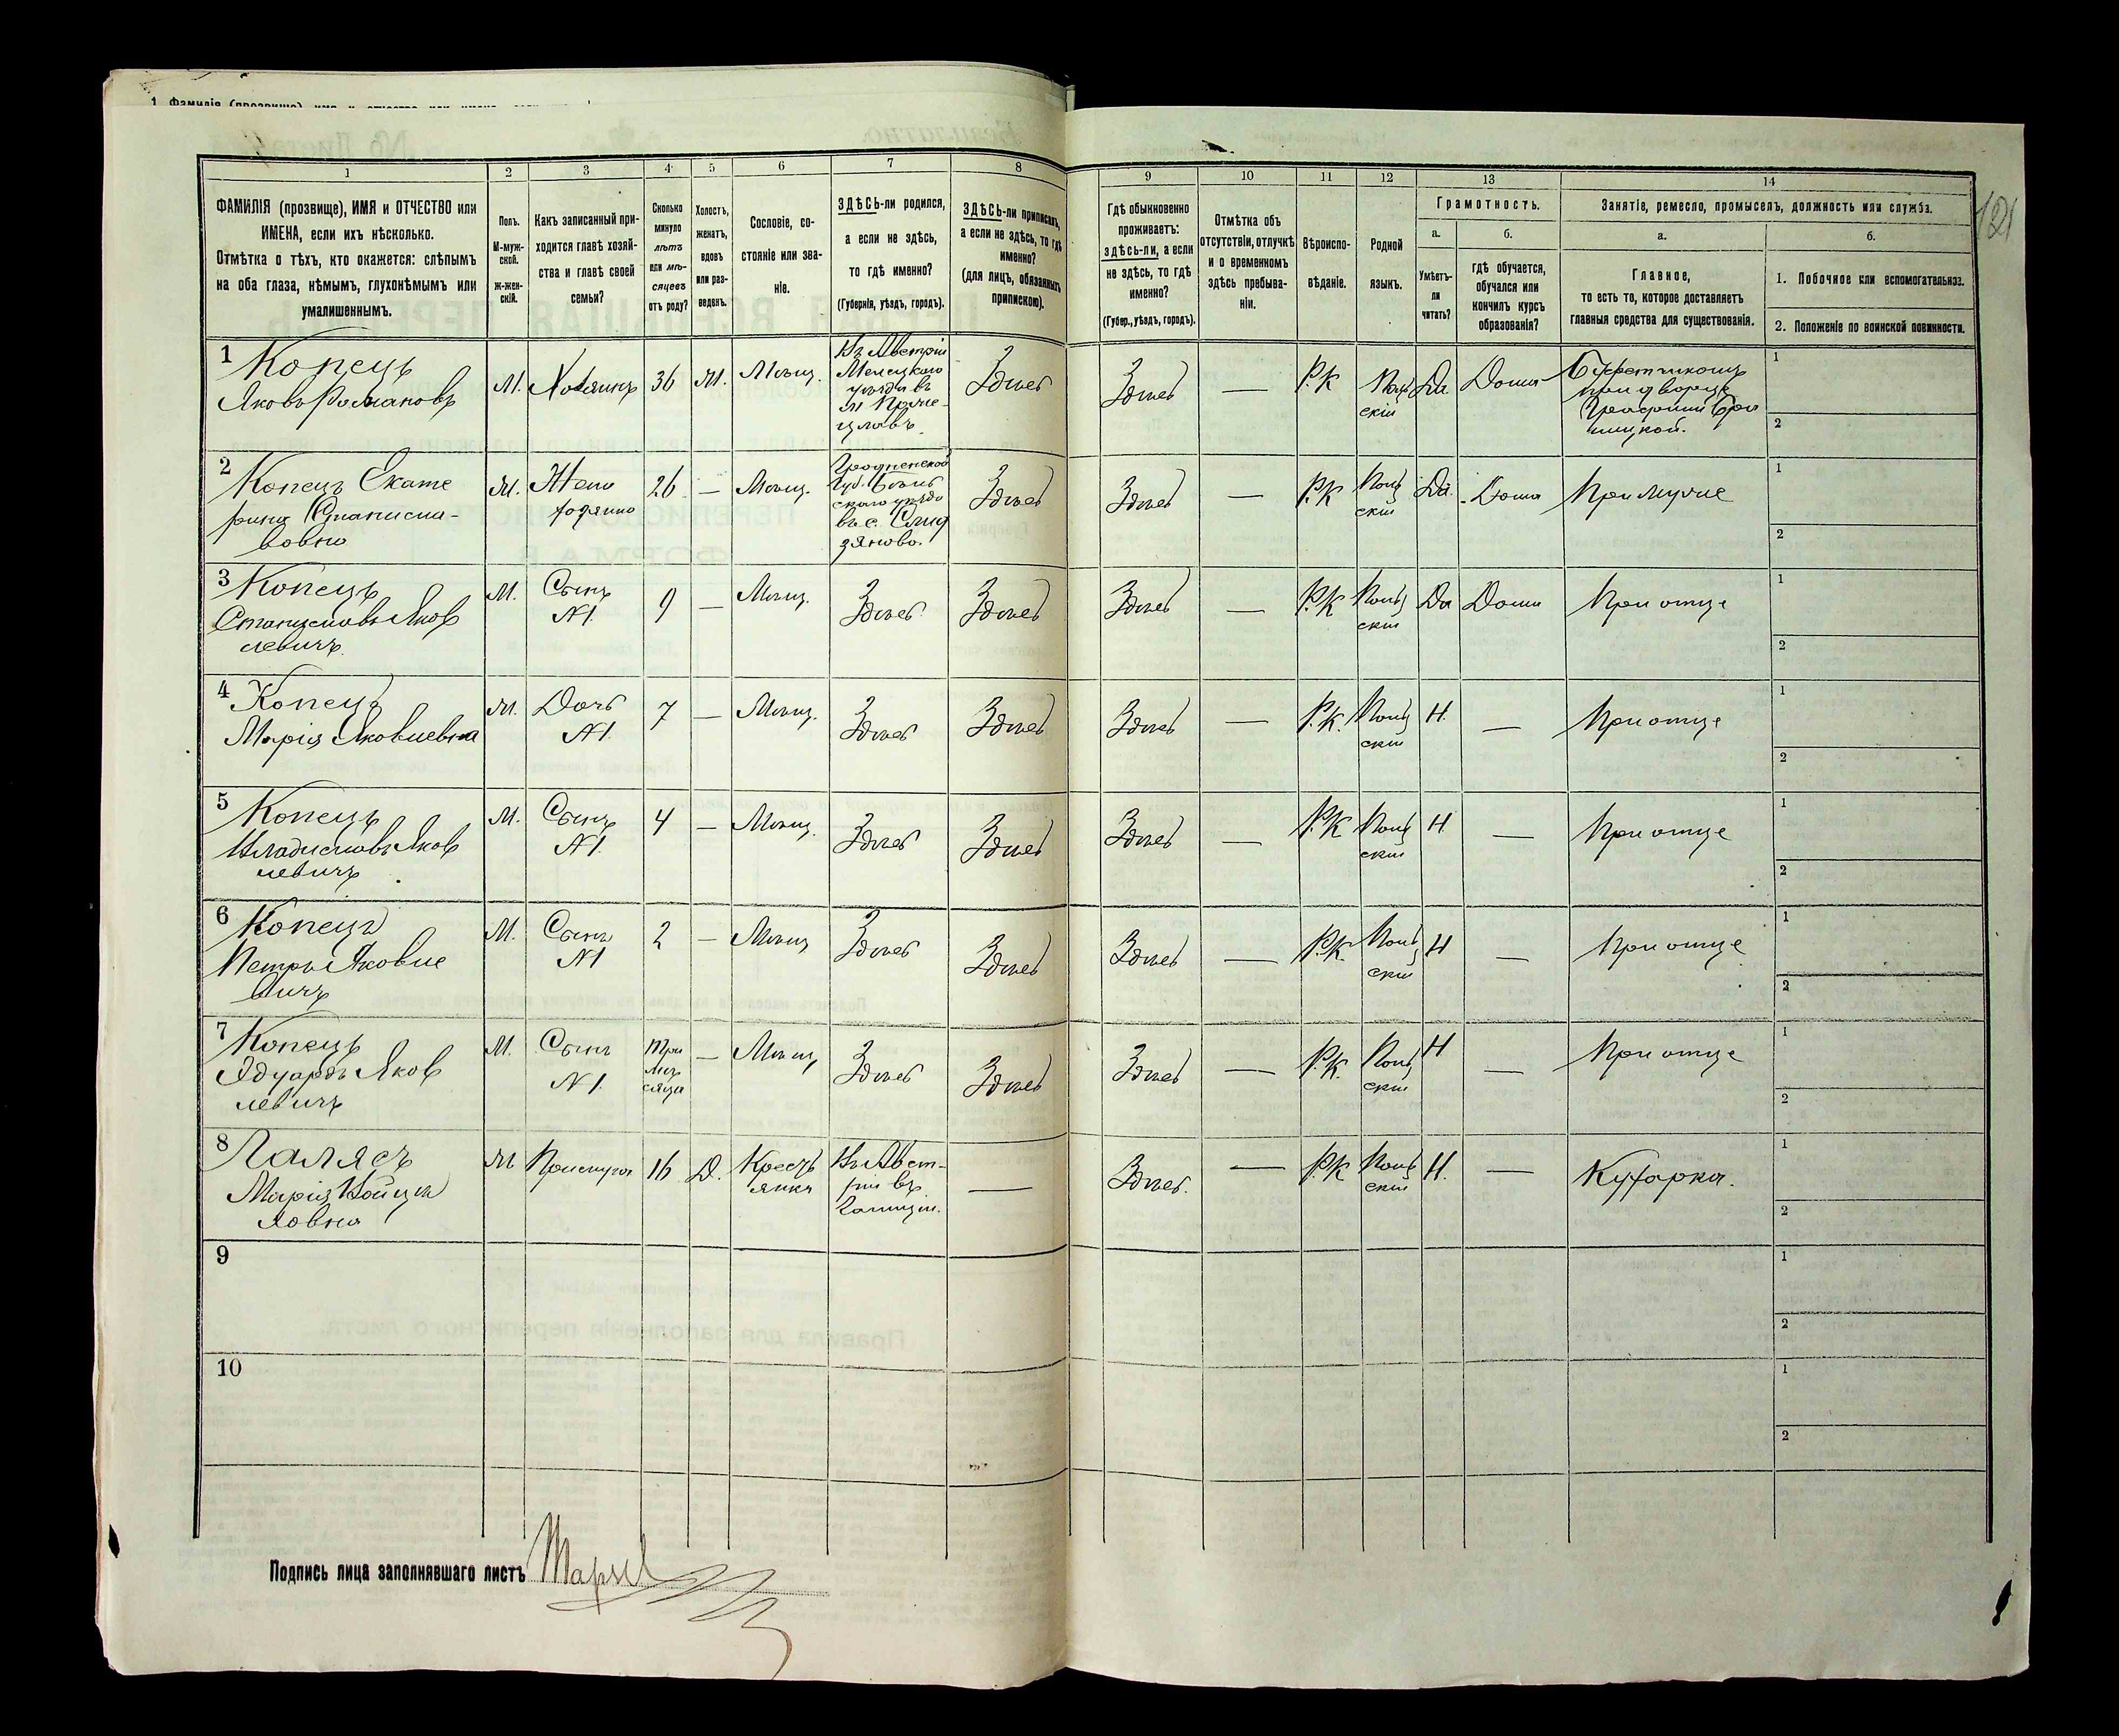 1
2
3
4
5
6
7
8
9
10
11
12
13
14
ФАМИЛІЯ (прозвище), ИМЯ и ОТЧЕСТВО или
ИМЕНА, если ихъ нѣсколько.
Отмѣтка о тѣхъ, кто окажется: слѣпымъ
на оба глаза, нѣмымъ, глухонѣмымъ или
умалишеннымъ.
Полъ.
М-муж-
ской.
Ж-жен-
скій.
Какъ записанный при-
ходится главѣ хозяй-
ства и главѣ своей
семьи?
Сколько
минуло
лѣтъ
или мѣ-
сяцевъ
отъ роду?
Холостъ,
женатъ,
вдовъ
или раз-
веденъ.
Сословіе, со-
стояніе или зва-
ніе.
ЗДѢСЬ-ли родился,
а если не здѣсь,
то гдѣ именно?
(Губернія, уѣздъ, городъ).
ЗДѢСЬ-ли приписанъ,
а если не здѣсь, то гдѣ
именно?
(для лицъ, обязанныхъ
припискою).
Гдѣ обыкновенно
проживаетъ:
здѣсь-ли, а если
не здѣсь, то гдѣ
именно?
(Губер., уѣздъ, городъ).
Отмѣтка объ
отсутствіи, отлучкѣ
и о временномъ
здѣсь пребыва-
ніи.
Вѣроиспо-
вѣданіе.
Родной
языкъ.
Грамотность.
а.
Умѣетъ-
ли
читать?
б.
гдѣ обучается,
обучался или
кончилъ курсъ
образованія?
Занятіе, ремесло, промыселъ, должность или служба.
а.
Главное,
то есть то, которое доставляетъ
главныя средства для существованія.
б.
1. Побочное или вспомогательное.
2. Положеніе по воинской повинности.
1 Копецъ
Яковъ Романовъ
М. Хозяинъ 36 М. Мѣщ.
Въ Австріи
уѣзда въ
Здѣсь Здѣсь — Р.К Поль
скій
Да Дома
1
2
2 Копецъ Екате
рина Станисла-
вовна
М. Жена
хозяина
26 — Мѣщ.
Гродненской
Губ. Бѣль
скаго уѣзда
въ с.
Здѣсь Здѣсь — Р.К Поль
скій
Да Дома При мужѣ
1
2
3 Копецъ
Станиславъ Яков
левичъ
М. Сынъ
№1.
9 — Мѣщ. Здѣсь Здѣсь Здѣсь — Р.К Поль
скій
Да Дома При отцѣ
1
2
4 Копецъ
Марія Яковлевна
М. Дочь
№1.
7 — Мѣщ. Здѣсь Здѣсь Здѣсь — Р.К. Поль
скій
Н. — При отцѣ
1
2
5 Копецъ
Владиславъ Яков
левичъ
М. Сынъ
№1.
4 — Мѣщ. Здѣсь Здѣсь Здѣсь — Р.К Поль
скій
Н — При отцѣ
1
2
6 Копецъ
Петръ Яковле
вичъ
М. Сынъ
№1
2 — Мѣщ Здѣсь Здѣсь Здѣсь — Р.К. Поль
скій
Н — При отцѣ
1
2
7 Копецъ
Эдуардъ Яков
левичъ
М. Сынъ
№1.
Три
мѣ
сяца
— Мѣщ Здѣсь Здѣсь Здѣсь — Р.К. Поль
скій
Н — При отцѣ
1
2
8
Марія Войцѣ
ховна
М Прислуга 16 Д. Кресть
янка
Въ Авст-
ріи въ
Галиціи.
— Здѣсь. — Р.К Поль
скій
Н. — Кухарка.
1
2
9
1
2
10
1
2
Подпись лица заполнявшаго листъ